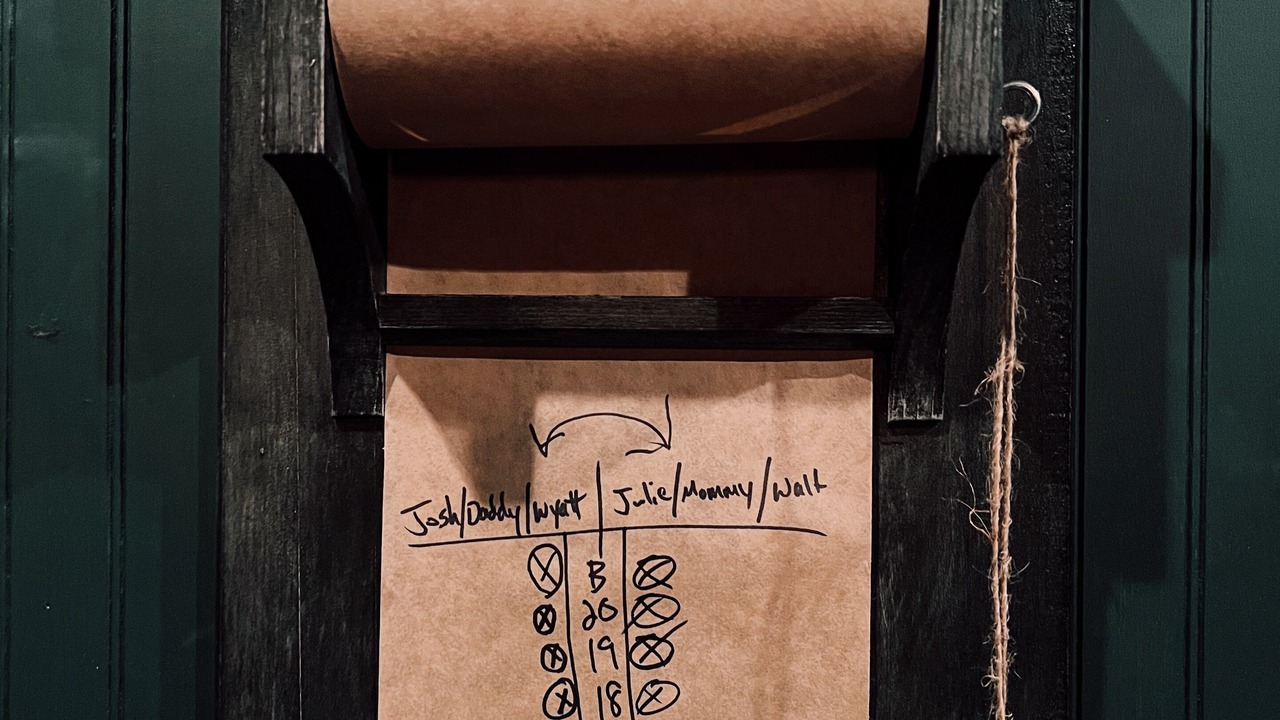 Josh/Daddy/Wyatt | Julie/Mommy/Walt
Ⓧ B Ⓧ
Ⓧ 20 Ⓧ
Ⓧ 19 Ⓧ
Ⓧ 18 Ⓧ